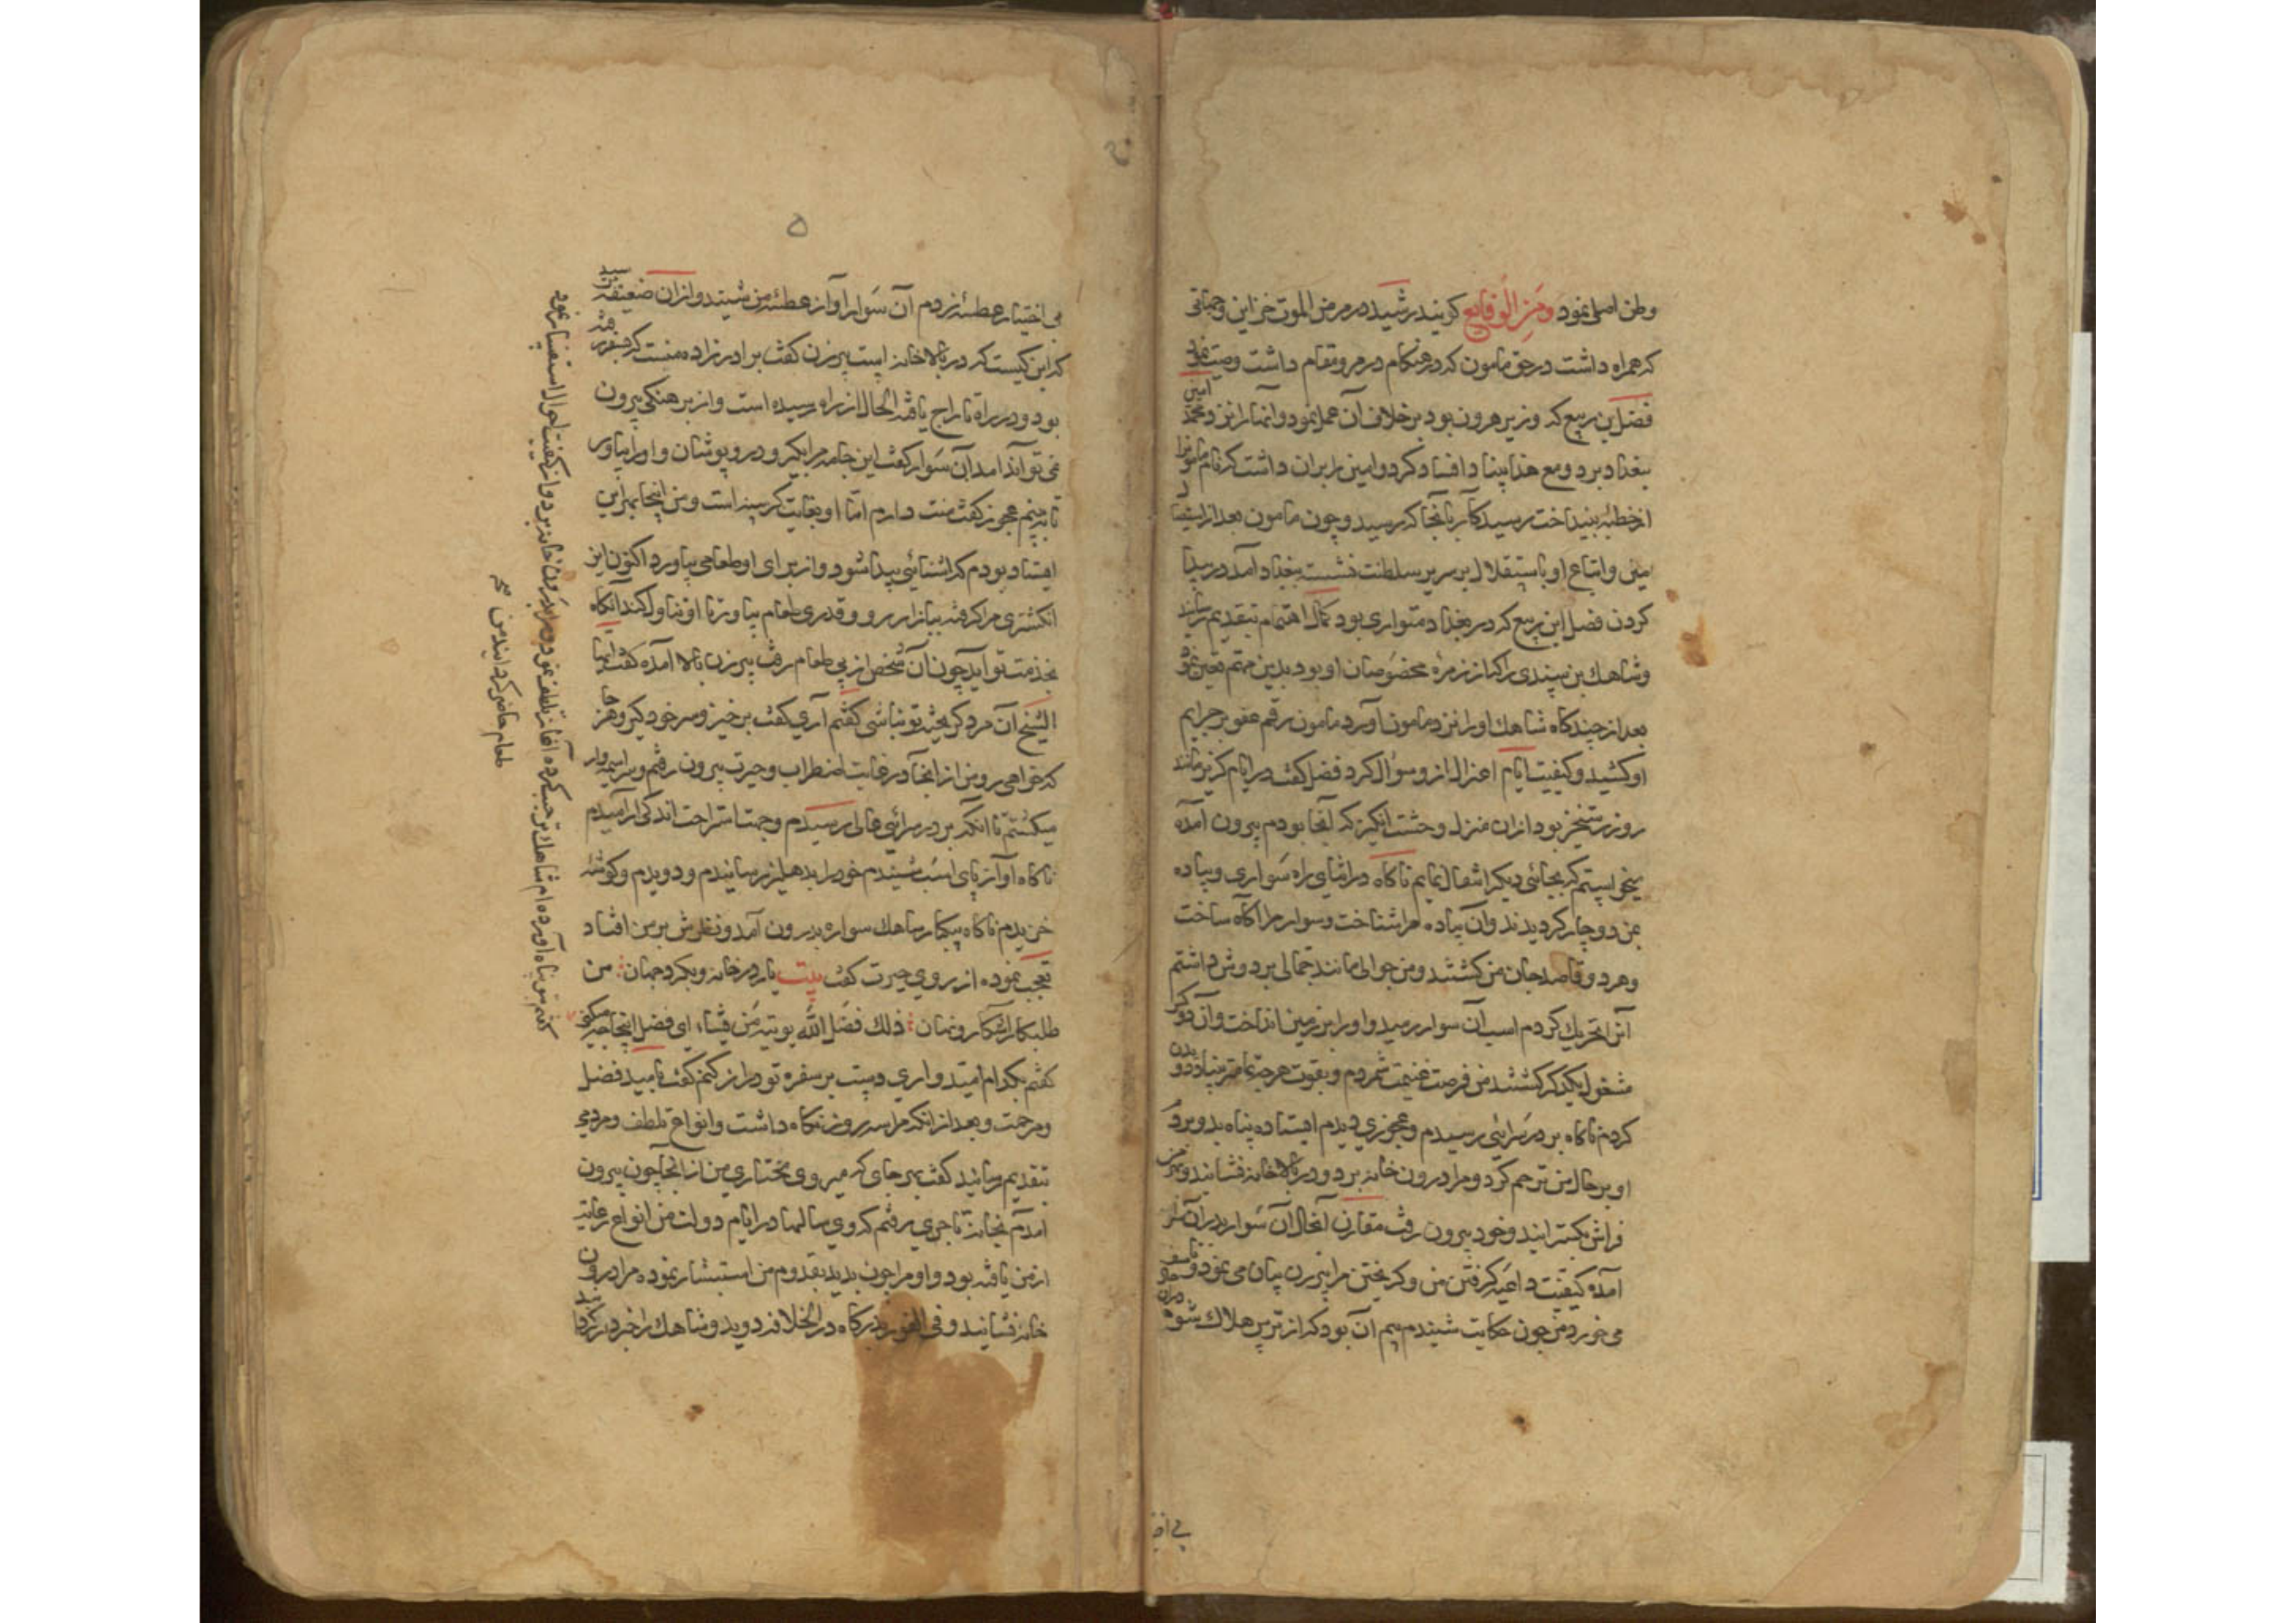 وطن اصلی نمود ومن الوقایع کویند رشید در مرض الموت خزاین و جهاتی
که همراه داشت در حق مامون که در هنکام در مرو مقام داشت وصیت نمود
فضل بن ربیع که وزیر هرون بود بر خلاف آن عمل نمود و انها را نزد محمد امین
ببغداد برد و مع هذا بنیاد افساد کرد و امین را بران داشت که نام مامون را
از خطبه بینداخت رسید کار بآنجا که رسید و چون مامون بعد از استیصال
امین و اتباع او باستقلال بر سریر سلطنت نشست ببغداد آمد در پیدا
کردن فضل ابن ربیع که در بغداد متواری بود کمال اهتمام بتقدیم رسانید
و شاهک بن سندی را که از زمره مخصوصان او بود بدین مهم تعیین نمود
بعد از چند کاه شاهک او را نزد مامون آورد مامون رقم عفو بر جرایم
او کشید و کیفیت ایام اعتزال ازو سوال کرد فضل کفت در ایام کریز مانند
روز رستخیز بود ازان منزل وحشت انکیز که آنجا بودم بیرون آمده
میخواستم که بجائی دیکر انتقال نمایم ناکاه در اثنای راه سواری و پیاده
بمن دوچار کردیدند و آن پیاده مرا شناخت و سوار را آکاه ساخت
و هر دو قاصد جان من کشتند و من جوالی مانند حمالی بر دوش داشتم
آنرا تحریک کردم اسب آن سوار رمید و او را بر زمین انداخت و آن دو کس
مشغول یکدیکر کشتند من فرصت غنیمت شمردم و بقوت هرچه تمامتر بنیاد دویدن
کردم ناکاه بر در سرائی رسیدم و عجوزی دیدم ایستاده پناه بدو بردم
او بر حال من ترحم کرد و مرا درون خانه برد و در بالاخانه نشاند و بهر من
فراش بکسترانید و خود بیرون رفت مقارن آنحال آن سوار بدران سرا
آمده کیفیت داعیه کرفتن من و کریختن مرا به پیرزن بیان می نمود و تاسف
می خورد من چون حکایت شنیدم بیم آن بود که از ترس هلاک شوم
بی اخ
۵
بی اختیار عطسه زدم آن سوار آواز عطسه من شنید و ازان ضعیفه پرسید
که این کیست که در بالا خانه است پیرزن کفت برادرزاده منست که بسفر رفته
بود و در راه تاراج یافته الحال از راه رسیده است و از برهنکی بیرون
نمی تواند آمد آن سوار کفت این جامه مرا بکیر و درو پوشان و او را بیاور
تا به بینم عجوز کفت منت دارم اما او بغایت کرسنه است و من اینجا بهر این
ایستاد بودم که اشنائی پیدا شود و از برای او طعامی بیاورد اکنون این
انکشتری مرا کرفته ببازار رو و قدری طعام بیاور تا او تناول کند آنکاه
بخدمت تو آید چون آن شخص از پی طعام رفت پیرزن بالا آمده کفت ایها
الشیخ آن مرد کریخته تو باشی کفتم آری کفت برخیز و سر خود کیر و هر جا
که خواهی رو من از آنجا در غایت اضطراب و حیرت بیرون رفتم و سراسیمه وار
میکشتم تا انکه بر در سرائی عالی رسیدم و جهت استراحت اندکی ارامیدم
ناکاه آواز پای اسب شنیدم خود را بدهلیز رسانیدم و دویدم و کوشه
خزیدم ناکاه بیکبار شاهک سواره بدرون آمد و نظرش بر من افتاد
تعجب نموده از روی حیرت کفت بیت یار در خانه و بکرد جهان من
طلبکار اشکار و نهان ذلک فضل الله یوتیه من یشاء ای فضل اینجا چه میکنی
کفتم بکدام امیدواری دست بر سفره تو دراز کنم کفت بامید فضل
و مرحمت و بعد از انکه مرا سه روز نکاه داشت و انواع تلطف و مردمی
بتقدیم رسانید کفت بهر جای که میروی مختاری من از انجا چون بیرون
آمدم بخانه تاجری رفتم که وی سالها در ایام دولت من انواع رعایت
از من یافته بود و او مرا چون بدید بقدوم من استبشار نموده مرا درون
خانه نشانید و فی الفور بدرکاه دار الخلافه دوید و شاهک را خبردار کردانید
کفتم بتو پناه آورده ام شاهک ترحب کرده آغاز تلطف نمود و مرا بدرون خانه برد و از کیفیت احوال استفسار نمود
طعام حاضر کردانید من